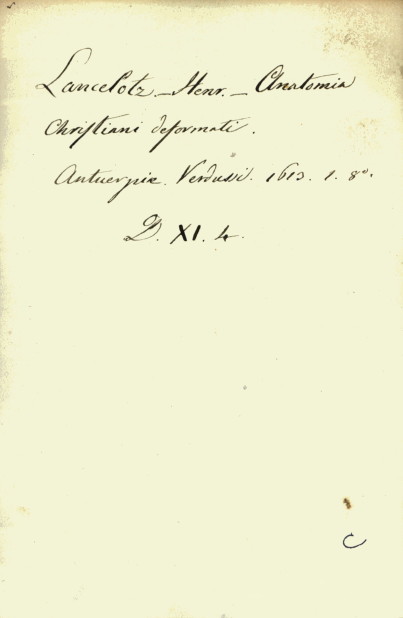 Lancelotz _ Henr. _ Anatomia
Christiani deformati.
Antuerpiæ. Verdussi. 1613. 1. 8º.
D. XI. 4.
C